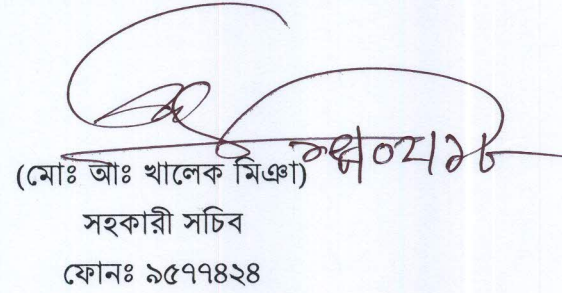 (মোঃ আঃ খালেক মিঞা)
সহকারী সচিব
ফোনঃ ৯৫৭৭৪২৪